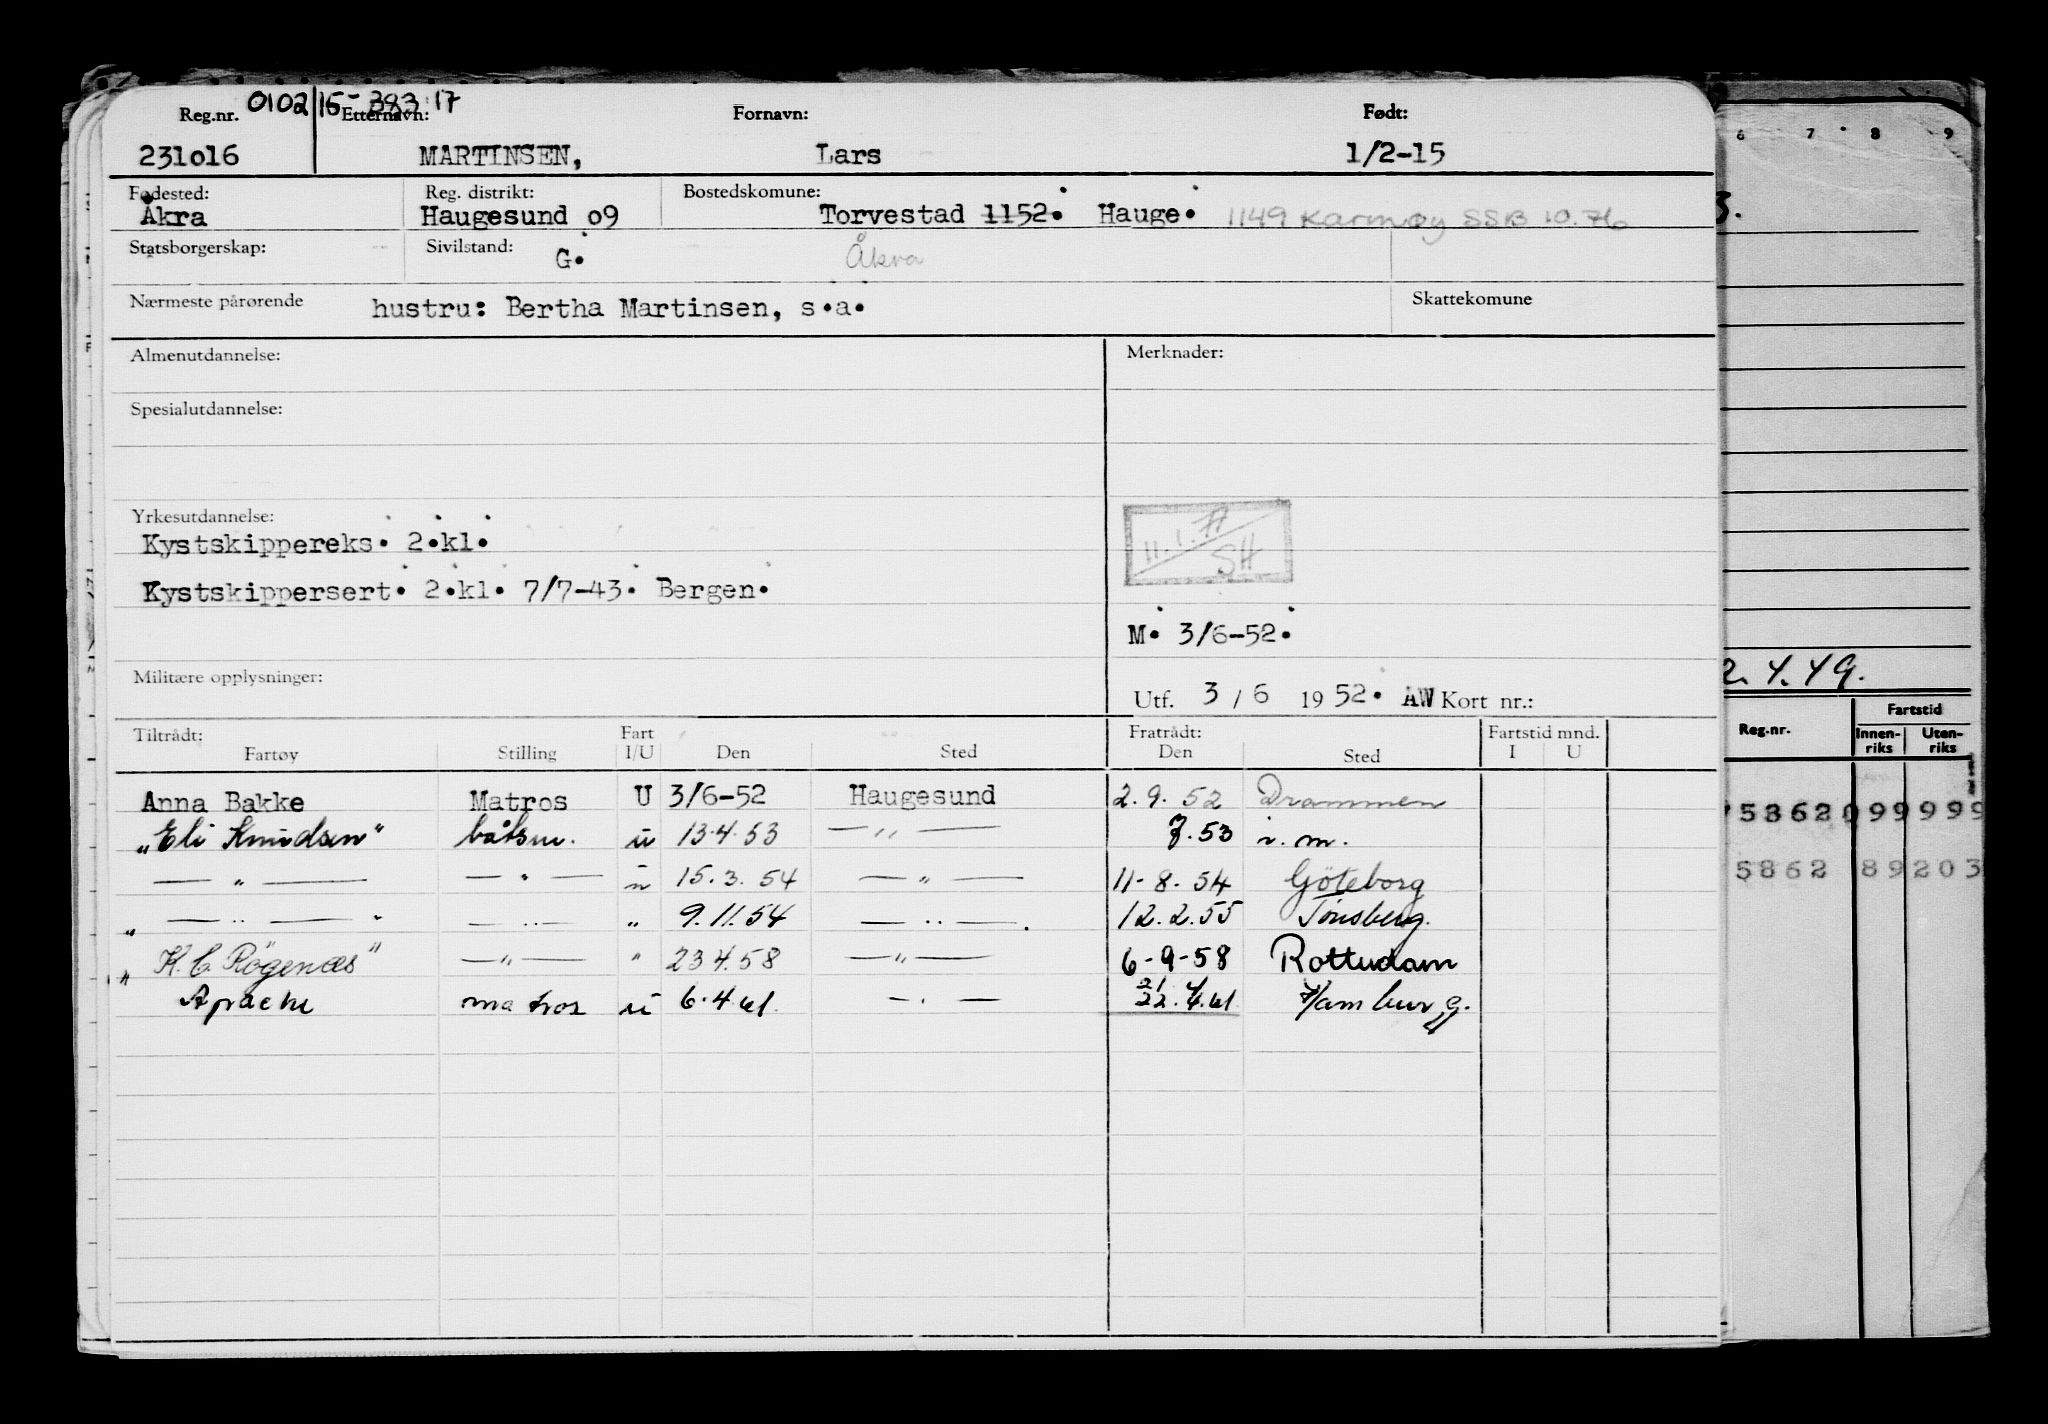 010215-38317
Reg.nr. Etternavn: Fornavn: Født:
231016 MARTINSEN, Lars 1/2-15
Fødested: Reg. distrikt: Bostedskomune:
Åkra Haugesund 09 Torvestad 1152. Hauge. 1149 Karmøy SSB 10.76
Statsborgerskap: Sivilstand: G. Åkra
Nærmeste pårørende hustru: Bertha Martinsen, s.a. Skattekomune
Almenutdannelse: Merknader:
Spesialutdannelse:
Yrkesutdannelse:
Kystskippereks. 2.kl. 11.1.77 SH
Kystskippersert. 2.kl. 7/7-43. Bergen.
M. 3/6-52.
Militære opplysninger: Utf. 3/6 1952. AW Kort nr.:
Tiltrådt: Fart Fratrådt: Fartstid mnd.
Fartøy Stilling I/U Den Sted Den Sted I U
Anna Bakke Matros U 3/6-52 Haugesund 2.9.52 Drammen
"Eli Knudsen" båtsm. u 13.4.53 — " — 7.53 i.m.
— " — — " — u 15.3.54 — " — 11-8.54 Göteborg
" — " — " — " — " 9.11.54 — " — . 12.2.55 Tønsberg.
" K.C. Rögenæs" — " — " 23 4.58 — " — 6-9-58 Rotterdam
Apache matros u 6.4.61. — " — 21 22.4.61 Hamburg.
6 7 8 9
3.
2.4.49.
Reg.nr. Fartstid
Innen-riks Uten-riks
5862099999
586289203